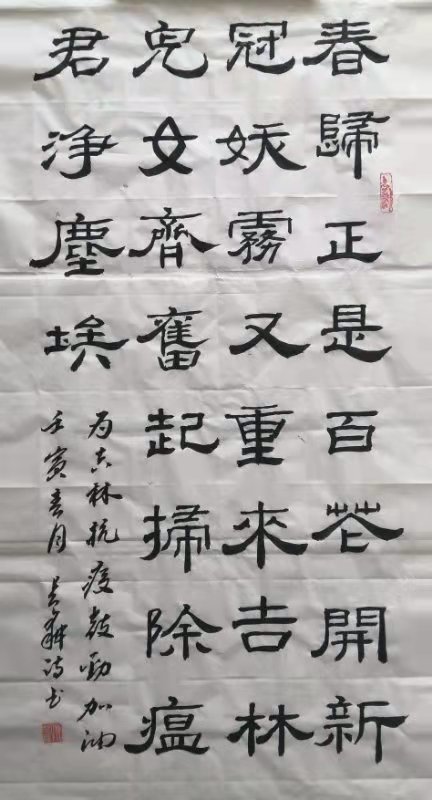 春歸正是百花開新
冠妖霧又重來吉林
兒女齊奮起掃除瘟
君淨塵埃
为吉林抗疫鼓劲加油
壬寅春月 书